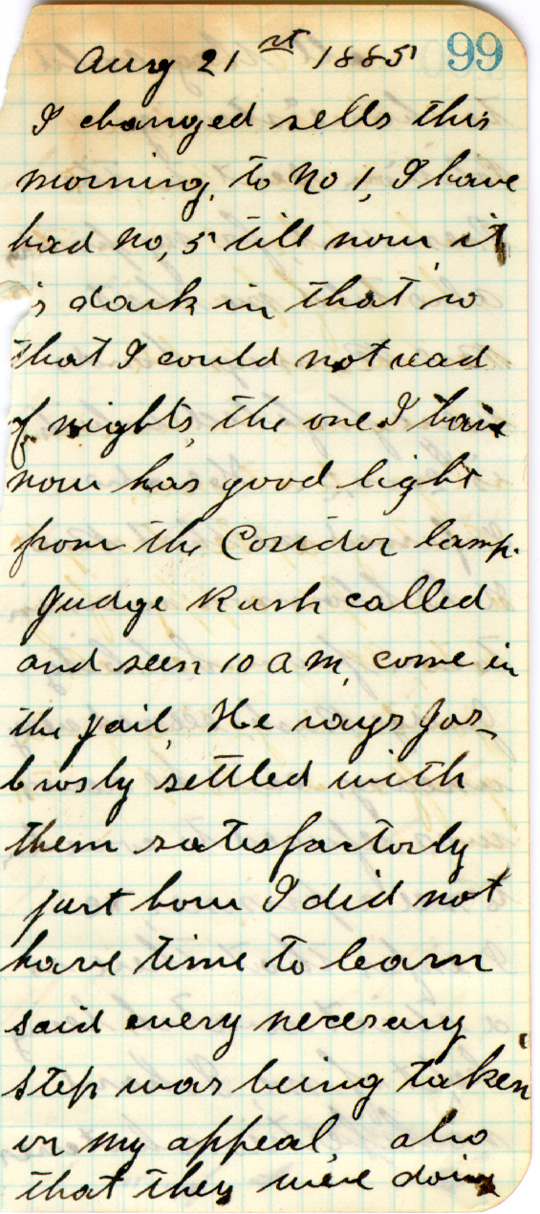 Aug 21st 1885 99
I changed sells this
morning, to No 1, I have
had No, 5 till now, it
is dark in that so
that I could not read
of nights, the one I have
now has good light
from the Coridor lamp.
Judge Rush called
and seen 10 a m, come in
the jail, He says Jos
settled with
them satisfactorly
just how I did not
have time to learn
said every necesary
step was being taken
in my appeal, also
that they were doing